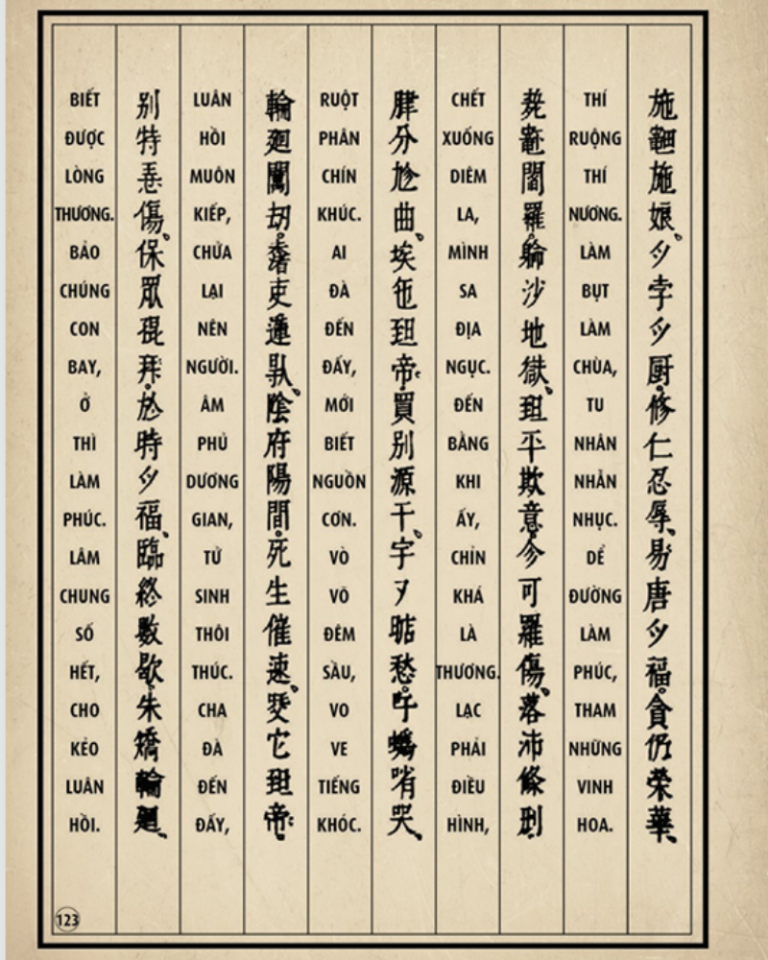 施施娘。𫜵孛𫜵厨。修仁忍辱、易唐𫜵福。貪仍榮華、
THÍ RUỘNG THÍ NƯƠNG. LÀM BỤT LÀM CHÙA, TU NHÂN NHẪN NHỤC. DỄ ĐƯỜNG LÀM PHÚC, THAM NHỮNG VINH HOA.
閻羅。沙地獄、平欺意。㐱可羅傷、落沛條刑
CHẾT XUỐNG DIÊM LA, MÌNH SA ĐỊA NGỤC. ĐẾN BẰNG KHI ẤY, CHỈN KHÁ LÀ THƯƠNG. LẠC PHẢI ĐIỀU HÌNH,
分曲。埃㐌帝。買别源干。愁。哨哭、
RUỘT PHÂN CHÍN KHÚC. AI ĐÀ ĐẾN ĐẤY, MỚI BIẾT NGUỒN CƠN. VÒ VÕ ĐÊM SẦU, VO VE TIẾNG KHÓC.
輪廻刼。吏蓮、陰府陽間。死生催速。它帝
LUÂN HỒI MUÔN KIẾP, CHỬA LẠI NÊN NGƯỜI. ÂM PHỦ DƯƠNG GIAN, TỬ SINH THÔI THÚC. CHA ĐÀ ĐẾN ĐẤY,
别特傷。保眾昆拜。於時𫜵福、臨終數歇。朱矯輪廻、
BIẾT ĐƯỢC LÒNG THƯƠNG. BẢO CHÚNG CON BAY, Ở THÌ LÀM PHÚC. LÂM CHUNG SỐ HẾT, CHO KẺO LUÂN HỒI.
123